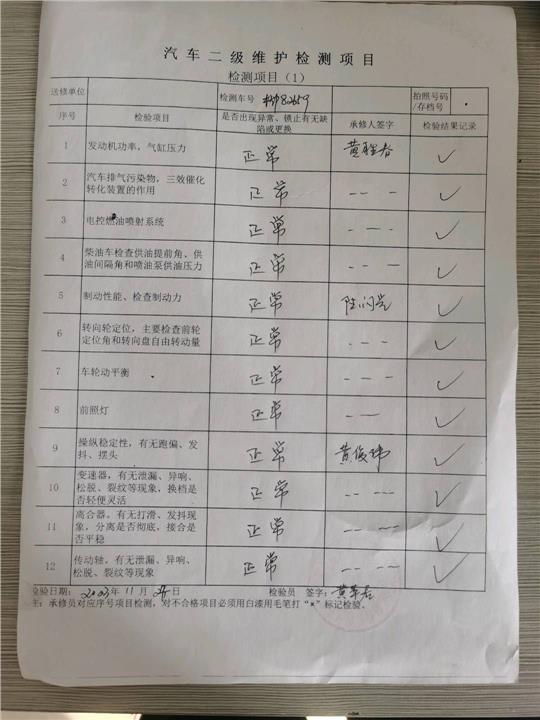 汽车二级维护检测项目
检测项目（1）
送修单位 检测车号 拍照号码/存档号
序号 检验项目 是否出现异常、锁止有无缺陷或更换 承修人签字 检验结果记录
1 发动机功率，气缸压力 正常 ✓
2 汽车排气污染物，三效催化转化装置的作用 正常 - - - ✓
3 电控燃油喷射系统 正常 - - - ✓
4 柴油车检查供油提前角、供油间隔角和喷油泵供油压力 正常 - - - ✓
5 制动性能、检查制动力 正常 ✓
6 转向轮定位，主要检查前轮定位角和转向盘自由转动量 正常 - - - ✓
7 车轮动平衡 正常 - - - ✓
8 前照灯 正常 - - ✓
9 操纵稳定性，有无跑偏、发抖、摆头 正常 黄俊伟 ✓
10 变速器，有无泄漏、异响、松脱、裂纹等现象，换档是否轻便灵活 正常 - - - ✓
11 离合器。有无打滑、发抖现象，分离是否彻底，接合是否平稳 正常 - - - ✓
12 传动轴，有无泄漏、异响、松脱、裂纹等现象 正常 - - - ✓
检验日期： 年 11 月 日 检验员 签字：
注：承修员对应序号项目检测，对不合格项目必须用白漆用毛笔打“×”标记检验。